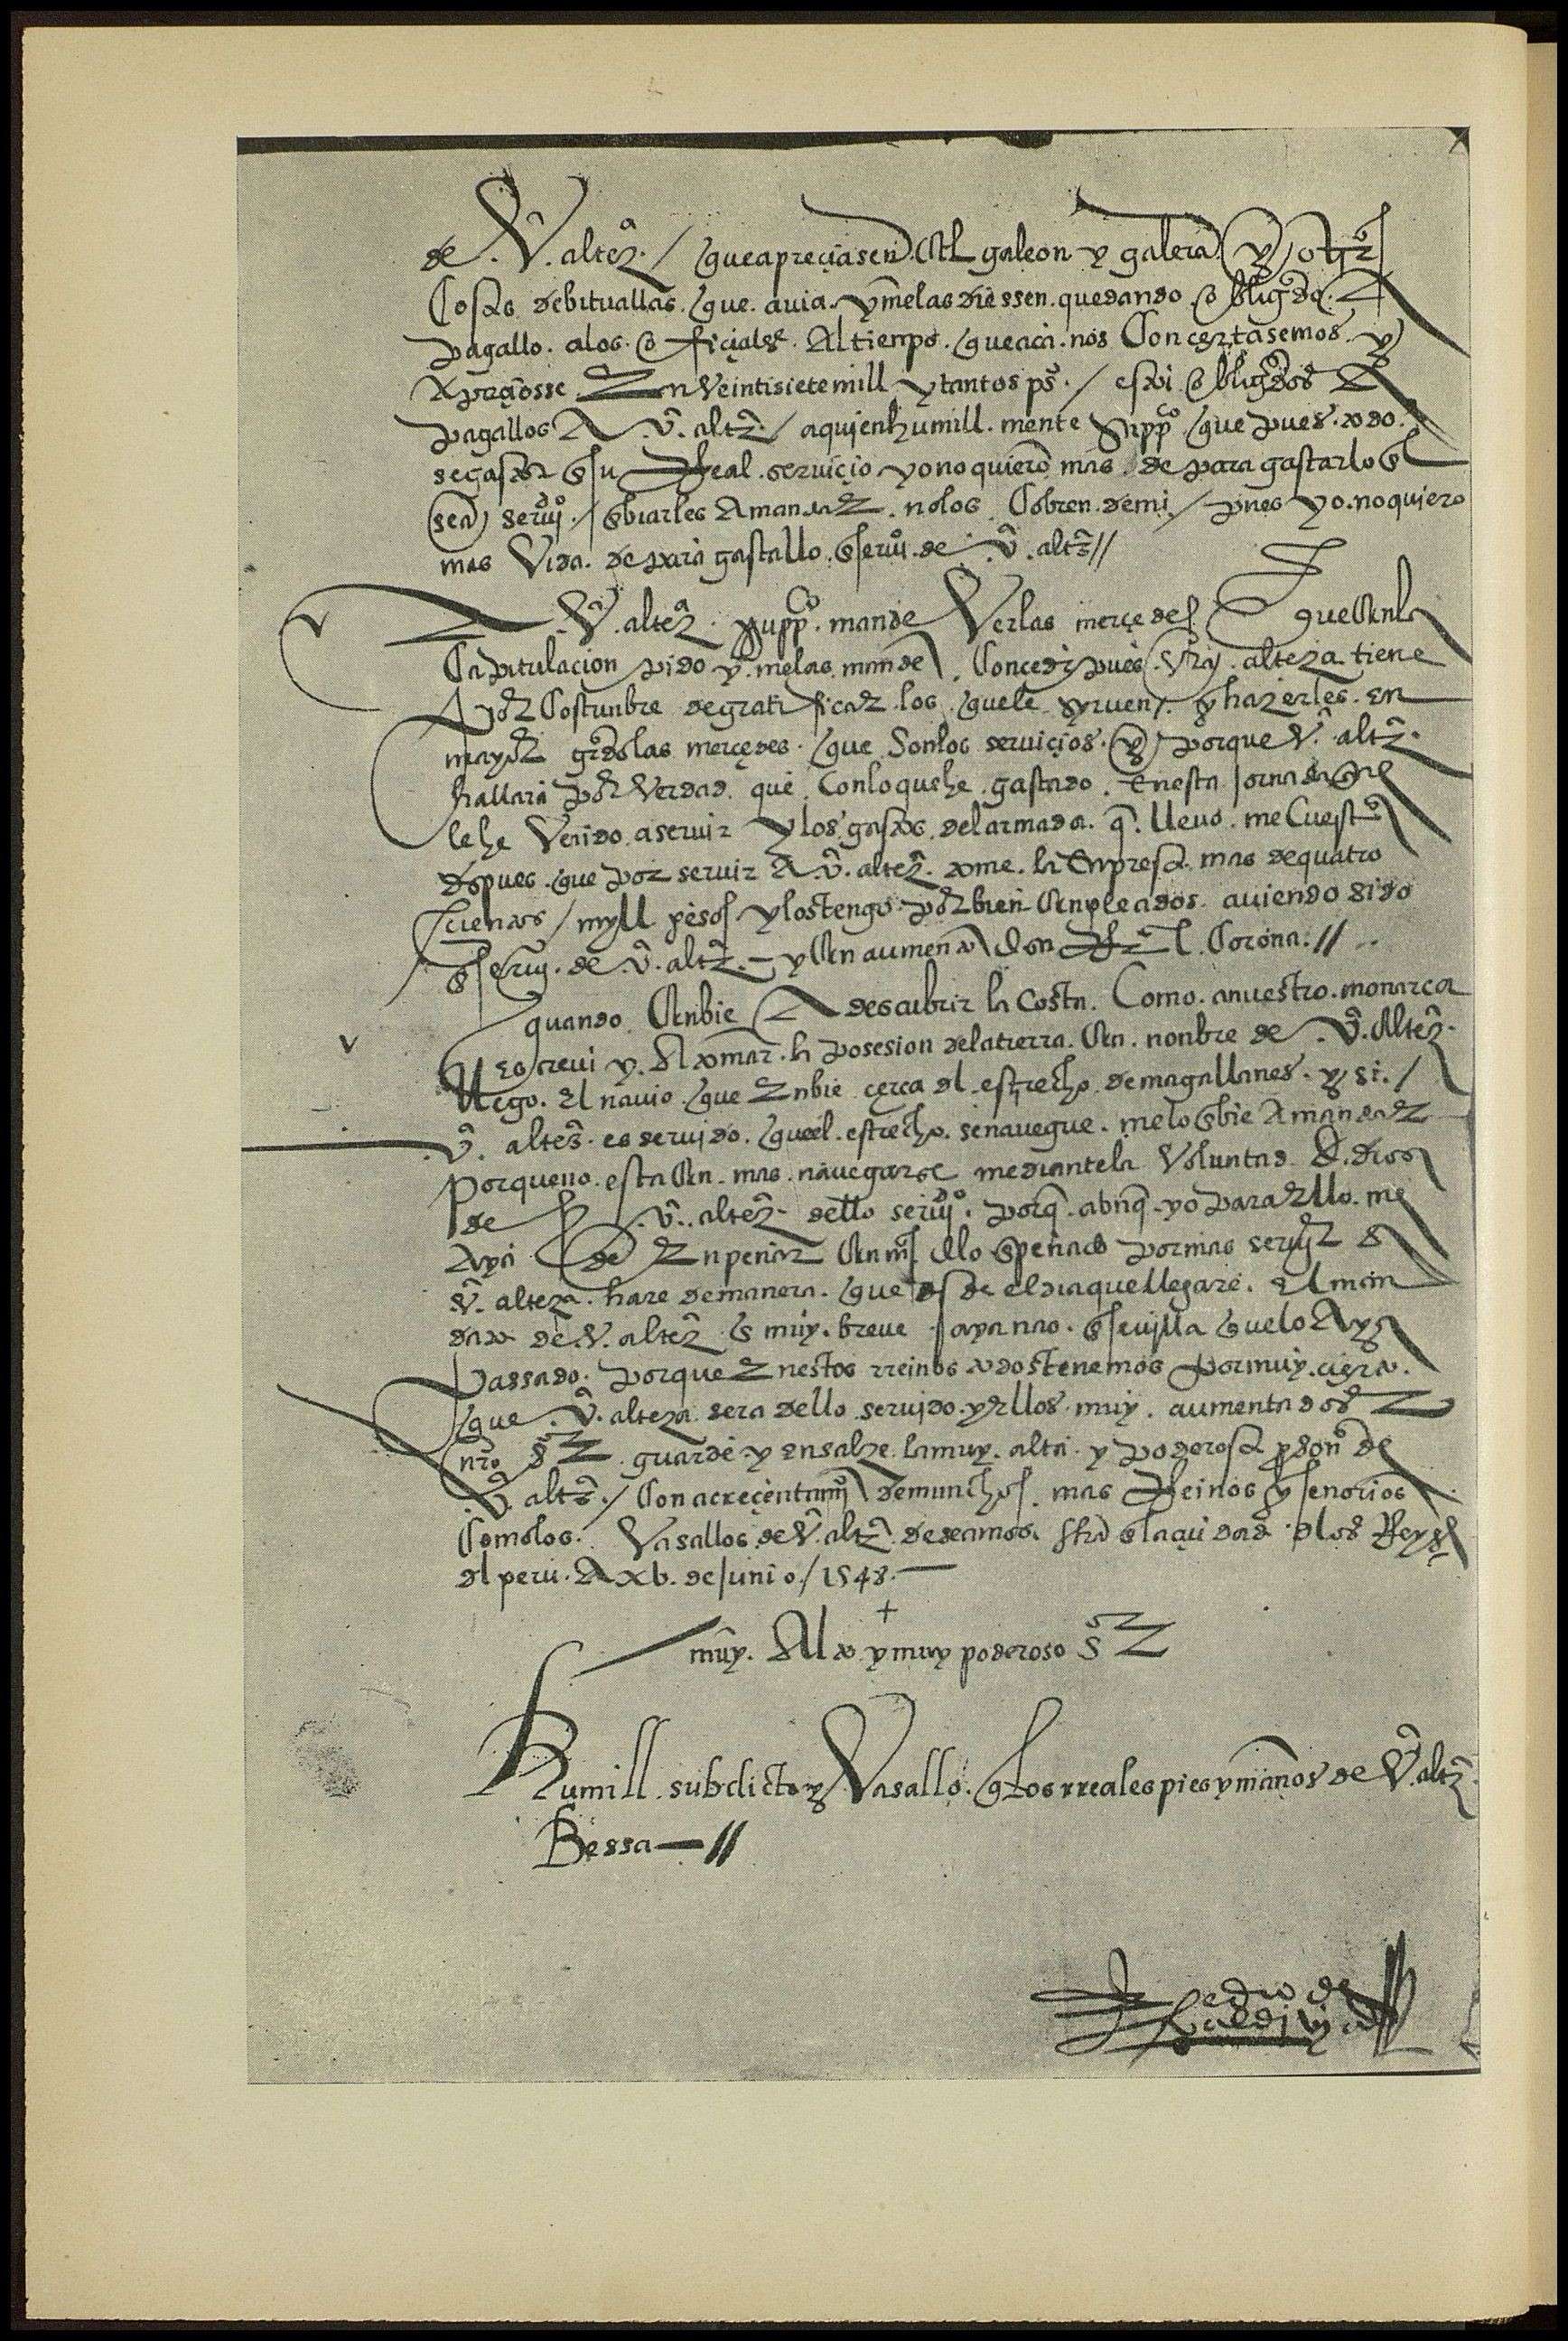 de V. altez. / que apreciasen el galeon y galera y otras
Cosas de bituallas que avia. y me las diessen. quedando obligado. A
pagallo. a los. oficiales. Al tienpo. que aca. nos Concertasemos. y
apreçiosse En Veintisiete mill y tantos ps. / estoi obligados A
pagallos A V. altz. / a quien humill.mente suppco que pues. todo.
se gasta en su Real. servicio yo no quiero mas de para gastarlo en
sea servido. / enbiarles A mandar. no los Cobren. de mi / pues yo. no quiero
mas Vida. de para gastallo. en servi. de V. altz //
A V. altez. suppco. mande Ver las merçedes que en la
Capitulacion pido y. me las mande Conceder pues vra. alteza tiene
por Costunbre de gratificar los que le syrven. y hazerles. en
mayor grado las merçedes. que Son los servicios. y porque V. altz.
hallara por Verdad que Con lo que he gastado. En esta jornada en que
le he Venido a servir y los gastos del armada. q. llevo. me Cuesta
despues. que por servir A V. altez. tome. la Enpresa mas de quatro
cientos / myll pesos y los tengo por bien Enpleados. aviendo sido
en servi. de V. altz. y En aumento de su Real Corona. //
quando Enbie A descubrir la Costa. Como. a nuestro. monarca
Escrevi y. A tomar. la posesion de la tierra. En. nonbre de V. Altez.
llego. El navio que Enbie cerca del estrecho de magallanes. y si. /
V. altez. es servido. que el. estrecho. se navegue. me lo enbie A mandar
porque no. esta En. mas. navegarse mediante la Voluntad De dios
de V. altez. dello servido. porq. abnq. yo para Ello. me
aya de Enpeñar En mas de lo enpeñado por mas servir a
V. alteza. hare de manera. que desde el dia que llegare. El man
dato de V. altez en muy. breve aya nao. en sevilla que lo Aya
passado. porque En estos rreinos todos tenemos por muy. cierto.
que. V. alteza. sera dello servido. y Ellos. muy. aumentados
nro Sr guarde y ensalze. la muy. alta. y poderosa persona de
V. altz. / Con acrecentami de munchos mas Reinos y señorios
Como los. Vasallos de V. altz. deseamos. fha en la ciudad de los Reyes
del peru. A xb. de junio. / 1548.
+
muy. Alto y muy poderoso Sr
Humill. subdicto y Vasallo. q los rreales pies y manos de V. altz.
Bessa — //
Pedro de
Valdivia